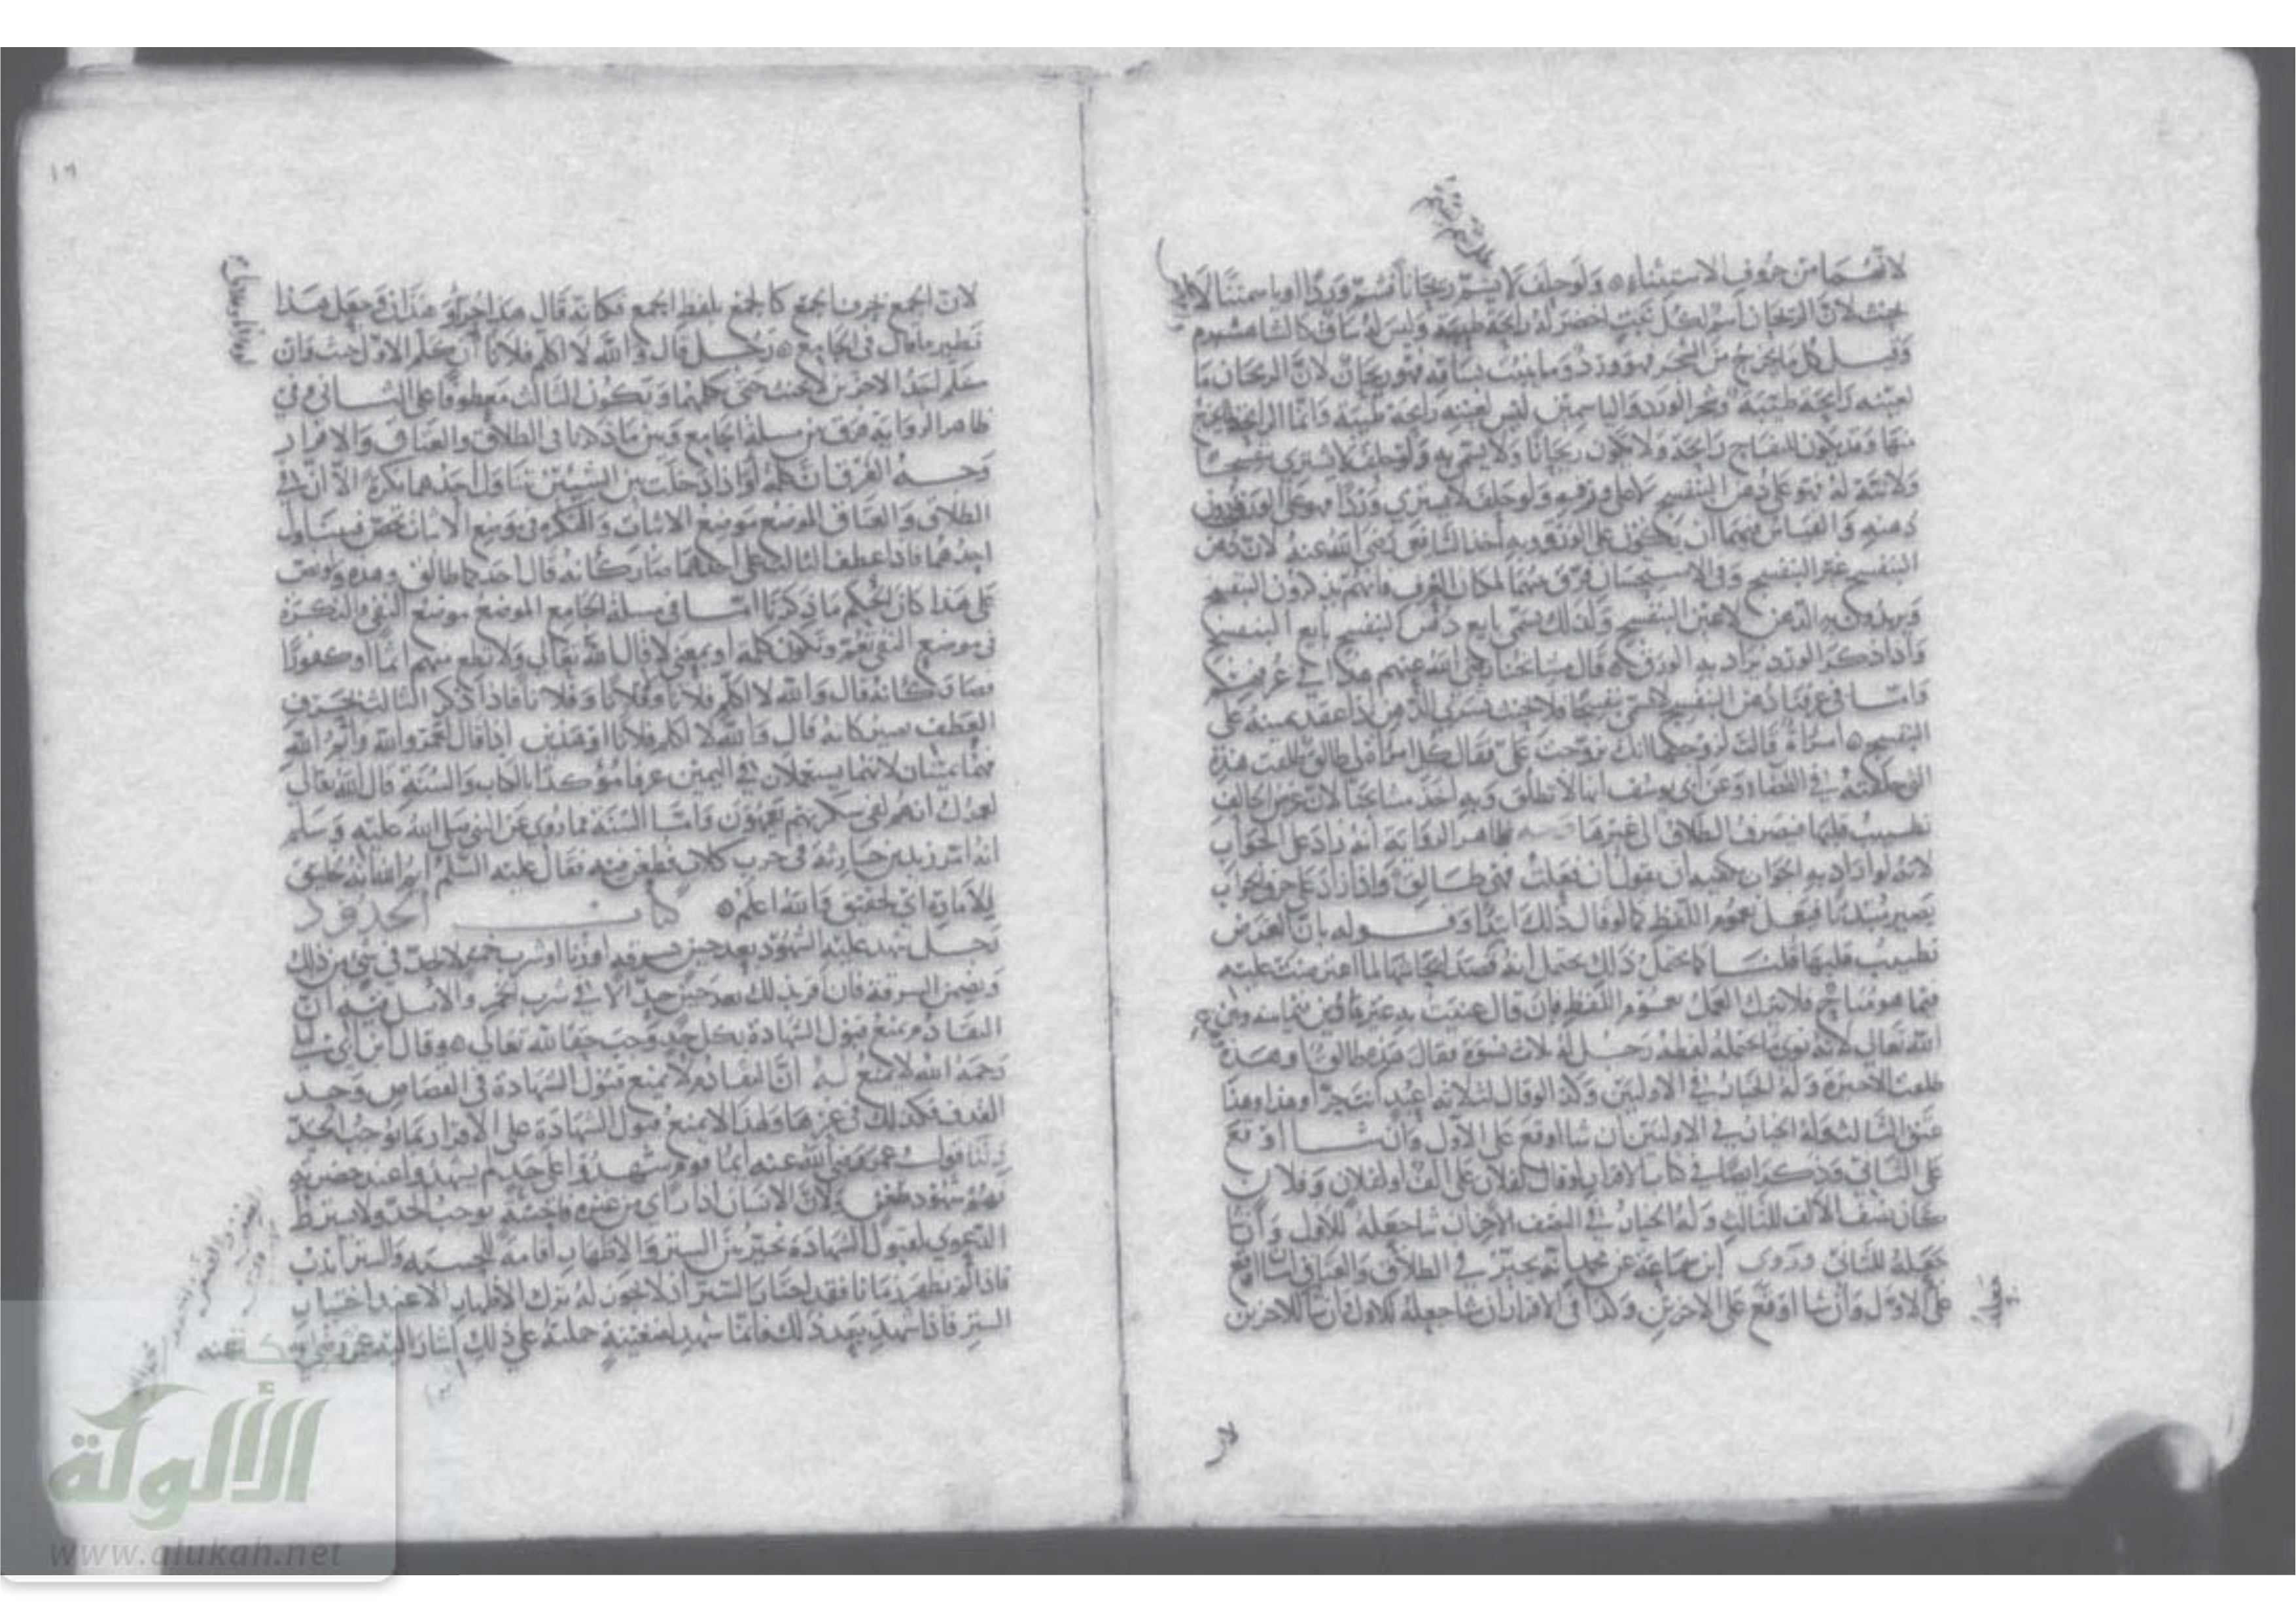 لانهما من حروف الاستثناء ولو حلف لا يشم ريحانا فشم وردا او ياسمينا لا
يحنث لان الريحان اسم لكل نبت اخضر له رائحة طيبة وليس له ساق
وقيل كل ما يخرج من الشجر فهو ورد وما ينبت بساقه فهو ريحان لان الريحان ما
لعينه رائحة طيبة وشجر الورد والياسمين ليس لعينه رائحة طيبة وانما الرائحة
منها وقد يكون للتفاح رائحة ولا يكون ريحانا ولو حلف لا يشتري بنفسجا
ولا نية له فهو على دهن البنفسج لا على ورقه ولو حلف لا يشتري وردا فهو على الورق دون
دهنه والقياس فيهما ان يكون على الورق وبه اخذ الشافعي رضي الله عنه لان دهن
البنفسج غير البنفسج وفي الاستحسان فرق بينهما لمكان العرف فانهم يذكرون البنفسج
ويريدون به الدهن لا عين البنفسج ولذلك يسمى بايع دهن البنفسج بايع البنفسج
واذا ذكر الورد يراد به الورق قال مشايخنا رضي الله عنهم هكذا في عرفهم
واما في عرفنا دهن البنفسج لا يسمى بنفسجا فلا يحنث بشرى الدهن اذا عقد يمينه على
البنفسج امراة قالت لزوجها انك تزوجت علي فقال كل امراة لي طالق طلقت هذه
التي حلفته في القضاء وعن ابي يوسف انها لا تطلق وبه اخذ مشايخنا لان غرض الحالف
تطييب قلبها فينصرف الطلاق الى غيرها ظاهر الرواية انه زاد على الجواب
لانه لو اراد به الجواب يكفيه ان يقول ان فعلت فهي طالق واذا زاد على حرف الجواب
يصير مبتدئا فيعمل بعموم اللفظ كما لو قال ذلك ابتداء وقوله بان الغرض
تطييب قلبها قلنا كما يحتمل ذلك يحتمل انه قصد ايحاشها لما اعترضت عليه
فيما هو مباح فلا يترك العمل بعموم اللفظ فان قال عنيت به غيرها دين فيما بينه وبين
الله تعالى لانه نوى ما احتمله لفظه رجل له ثلاث نسوة فقال هذه طالق او هذه وهذه
طلقت الاخيرة وله الخيار في الاوليين وكذا لو قال لثلاثة اعبد انت حر او هذا وهذا
عتق الثالث وله الخيار في الاوليين ان شا اوقع على الاول وان شا اوقع
على الثاني وذكر ايضا في كتاب الاقرار لو قال لفلان علي الف او لفلان وفلان
كان نصف الالف للثالث وله الخيار في النصف الاخر ان شا جعله للاول وان شا
جعله للثاني وروى ابن سماعة عن محمد انه يخير في الطلاق والعتاق ان شا اوقع
على الاول وان شا اوقع على الاخرين وكذا في الاقرار ان شا جعله للاول وان شا للاخرين
لان
١٦
لان الجمع بحرف الجمع كالجمع بلفظ الجمع فكانه قال هذا حر او هذان وجعل هذا
نظير ما قال في الجامع رجل قال والله لا اكلم فلانا ان كلم الاول حنث فان
كلم احد الاخرين لا يحنث حتى يكلمهما ويكون الثالث معطوفا على الثاني وفي
ظاهر الرواية فرق بين مسئلة الجامع وبين ما ذكرنا في الطلاق والعتاق والاقرار
وجه الفرق ان كلمة او اذا دخلت بين الشيئين تناول احدهما نكرة الا ان في
الطلاق والعتاق الموضع موضع الاثبات والنكرة في موضع الاثبات تخص فيتناول
احدهما فاذا عطف الثالث على احدهما صار كانه قال احدكما طالق وهذه ولو نص
على هذا كان الحكم ما ذكرنا اما في مسئلة الجامع الموضع موضع النفي والنكرة
في موضع النفي تعم وتكون كلمة او بمعنى لا قال الله تعالى ولا تطع منهم اثما او كفورا
فصار كانه قال والله لا اكلم فلانا وفلانا وفلانا فاذا ذكر الثالث بحرف
العطف صير كانه قال والله لا اكلم فلانا او هذين اذا قال لعمر والله وايم الله
فهما يمينان لانهما يستعملان في اليمين عرفا مؤكدا بالكتاب والسنة قال الله تعالى
لعمرك انهم لفي سكرتهم يعمهون واما السنة فما روي عن النبي صلى الله عليه وسلم
انه امر زيد بن حارثة في حرب كلاب فطعن فيه فقال عليه السلم ايم الله انه خليق
للامارة اي لحقيق والله اعلم كتاب الحدود
رجل شهد عليه الشهود بعد حين بسرقة او زنا او شرب خمر لا يحد في شي من ذلك
ويضمن السرقة فان اقر بذلك بعد حين حد الا في شرب الخمر والاصل فيه ان
التقادم يمنع قبول الشهادة بكل حد وجب حقا لله تعالى وقال ابن ابي ليلى
رحمه الله لا يمنع له ان التقادم لا يمنع قبول الشهادة في القصاص وحد
القذف فكذلك في غيرهما ولهذا لا يمنع قبول الشهادة على الاقرار بما يوجب الحد
ولنا قول عمر رضي الله عنه ايما قوم شهدوا على حد لم يشهدوا عند حضرته
فهم شهود ضغن ولان الانسان اذا راى من غيره فاحشة توجب الحد ولا يشترط
الدعوى لقبول الشهادة يخير بين الستر والاظهار اقامة للحسبة والستر اندب
فاذا لم يظهر زمانا فقد اختار الستر اذ لا يجوز له ترك الاظهار الا عند اختيار
الستر فاذا شهد بعد ذلك فانما شهد لضغينة حملته على ذلك اشار اليه عمر رضي الله عنه
شبكة
الألوكة
www.alukah.net